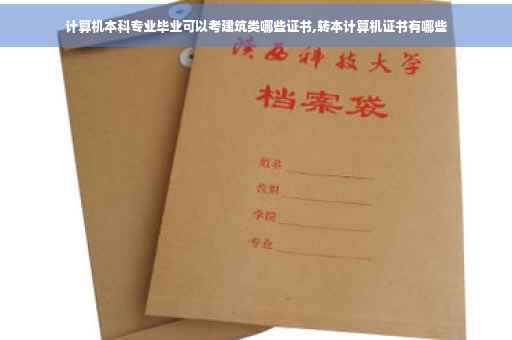 计算机本科专业毕业可以考建筑类哪些证书,转本计算机证书有哪些
陕西科技大学
档案袋
姓名
学院
专业